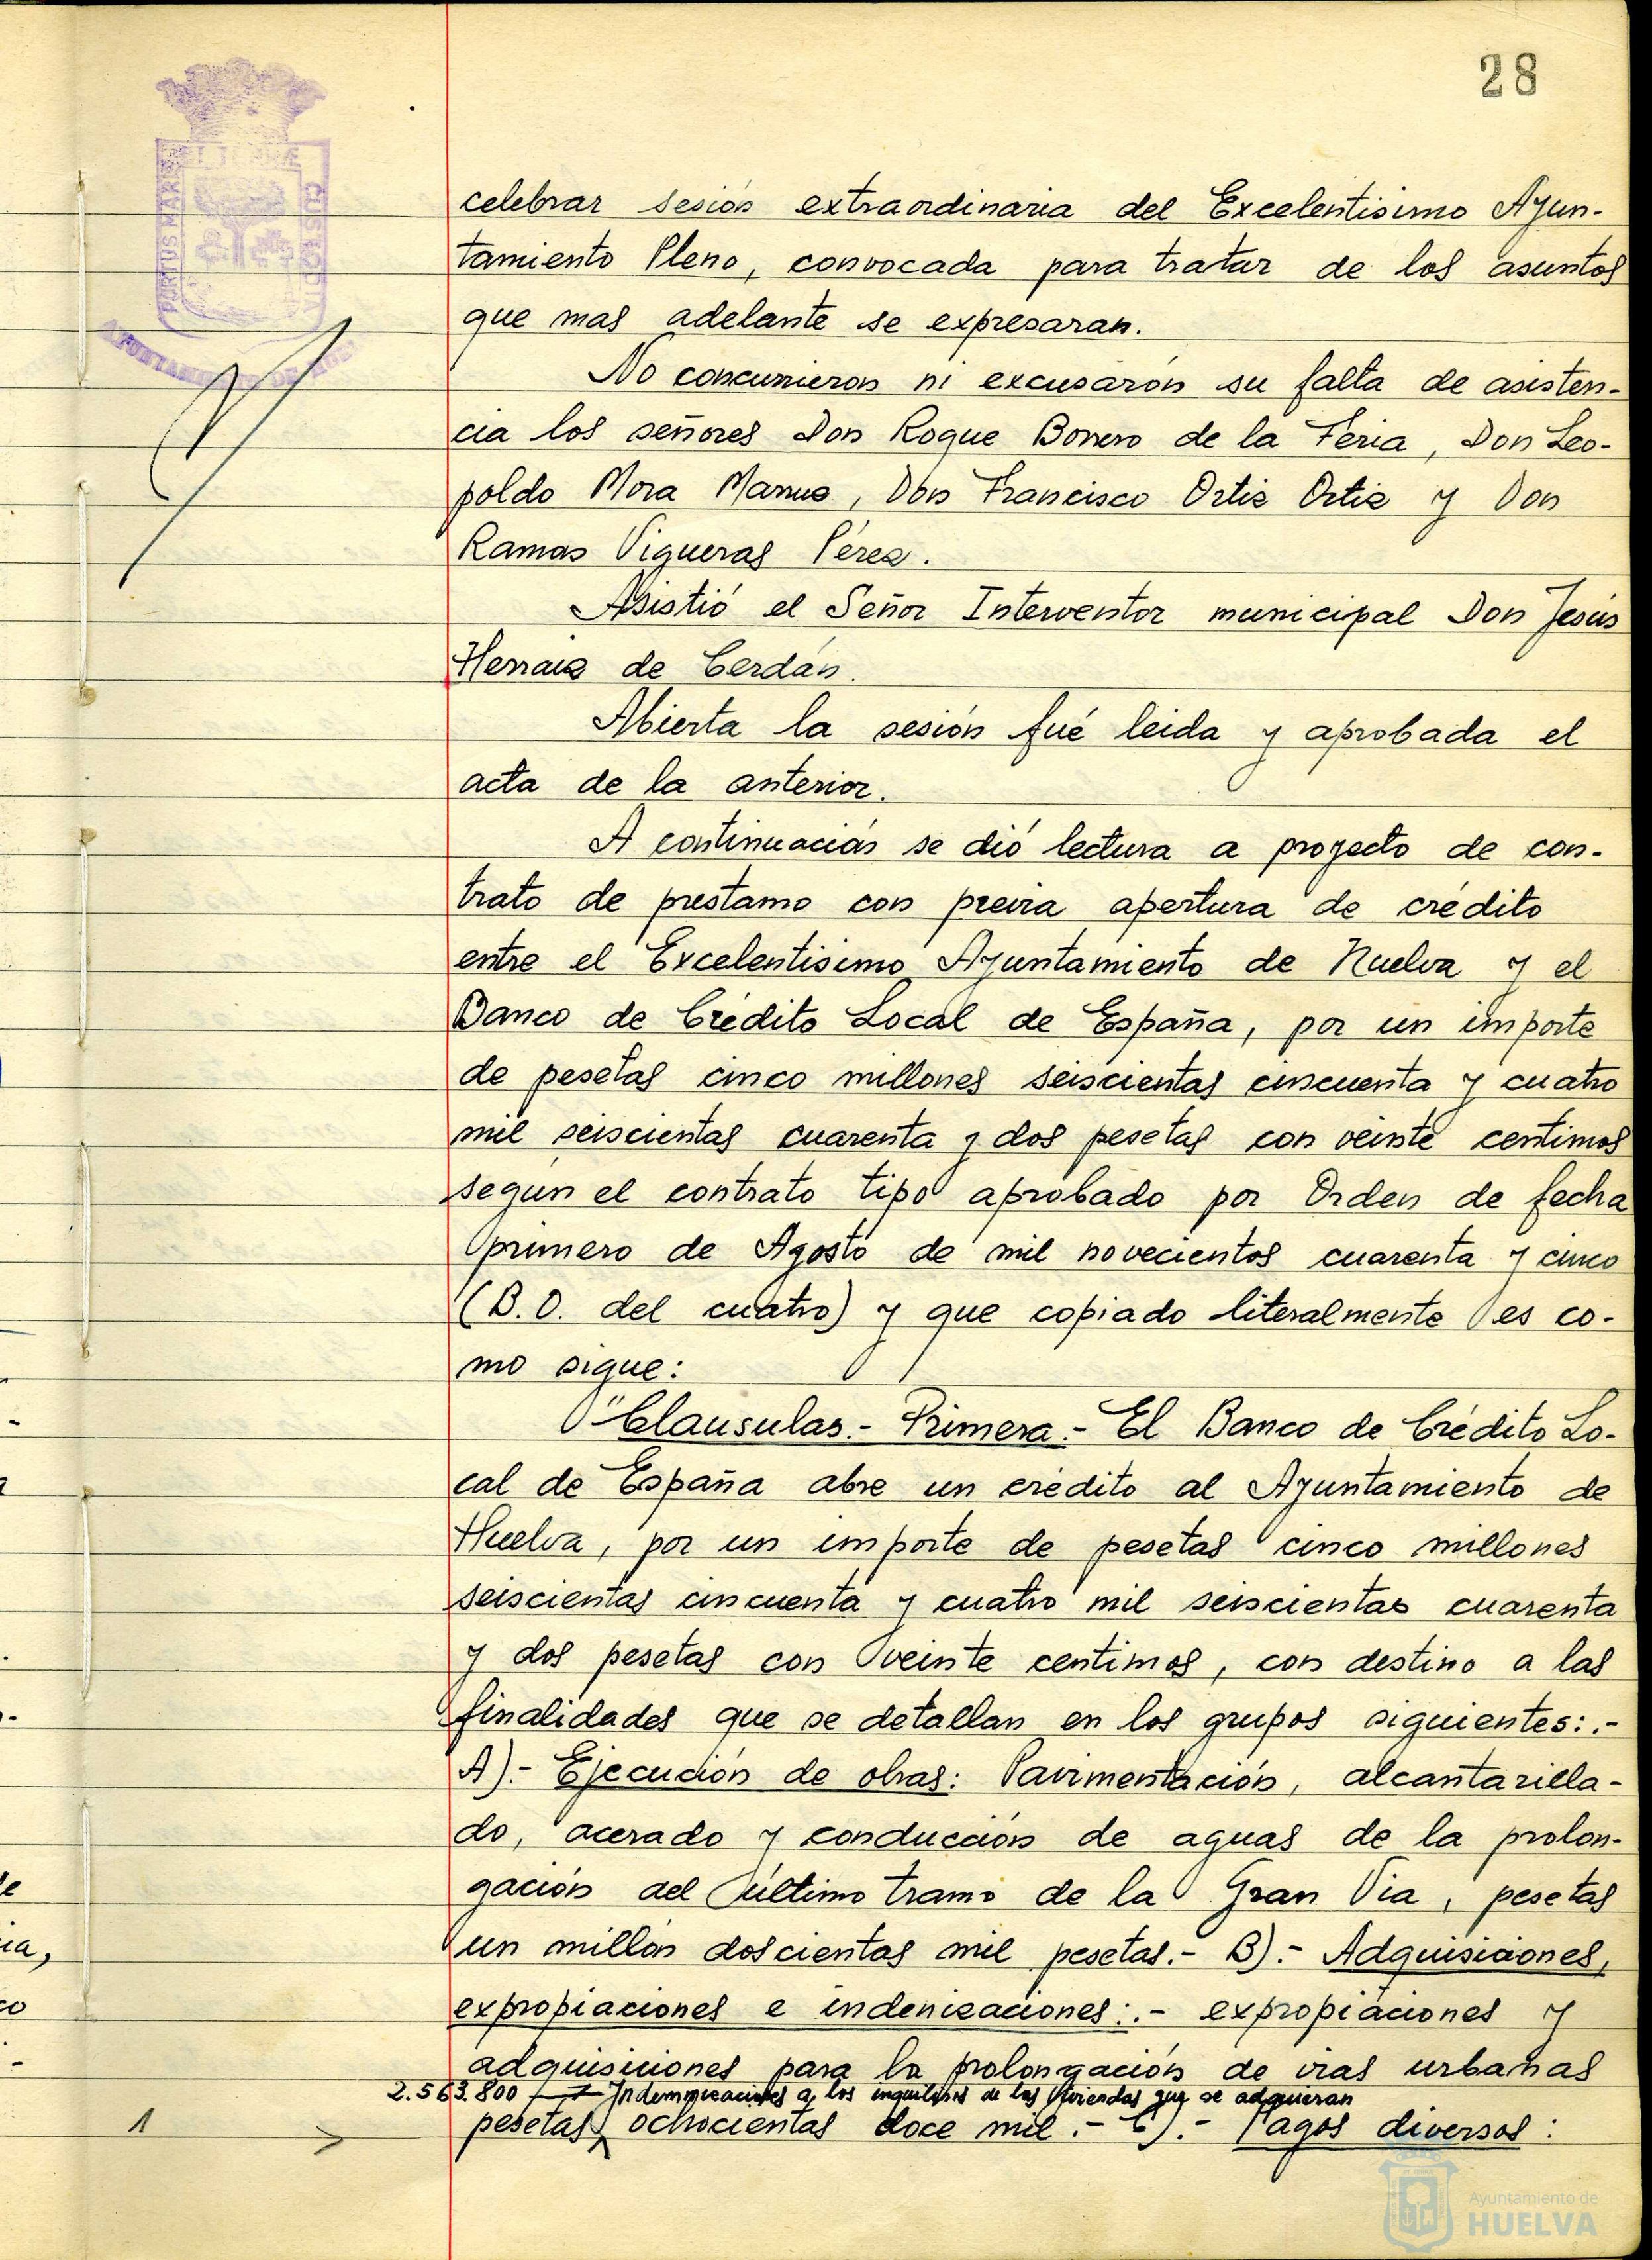 28
PORTUS MARIS ET TERRÆ CUSTODIA
AYUNTAMIENTO DE
celebrar sesión extraordinaria del Excelentisimo Ayun-
tamiento Pleno, convocada para tratar de los asuntos
que mas adelante se expresaran.
No concurrieron ni excusarón su falta de asisten-
cia los señores Don Roque Borrero de la Feria, Don Leo-
poldo Mora Manus, Don Francisco Ortiz Ortiz y Don
Ramon Vigueras Pérez.
Asistió el Señor Interventor municipal Don Jesús
Herraiz de Cerdán.
Abierta la sesión fué leida y aprobada el
acta de la anterior.
A continuación se dió lectura a proyecto de con-
trato de prestamo con previa apertura de crédito
entre el Excelentisimo Ayuntamiento de Huelva y el
Banco de Crédito Local de España, por un importe
de pesetas cinco millones seiscientas cincuenta y cuatro
mil seiscientas cuarenta y dos pesetas con veinte centimos
según el contrato tipo aprobado por Orden de fecha
primero de Agosto de mil novecientos cuarenta y cinco
(B.O. del cuatro) y que copiado literalmente es co-
mo sigue:
"Clausulas.- Primera.- El Banco de Crédito Lo-
cal de España abre un crédito al Ayuntamiento de
Huelva, por un importe de pesetas cinco millones
seiscientas cincuenta y cuatro mil seiscientas cuarenta
y dos pesetas con veinte centimos, con destino a las
finalidades que se detallan en los grupos siguientes:.-
A).- Ejecución de obras: Pavimentación, alcantarilla-
do, acerado y conducción de aguas de la prolon-
gación del último tramo de la Gran Via, pesetas
un millón doscientas mil pesetas.- B).- Adquisiciones,
expropiaciones e indenizaciones:.- expropiaciones y
adquisiciones para la prolongación de vias urbanas
2.563.800 Indemnizaciones a los inquilinos de las Viviendas que se adquieran
1 > pesetas, ochocientas doce mil.- C).- Pagos diversos:
Ayuntamiento de
HUELVA